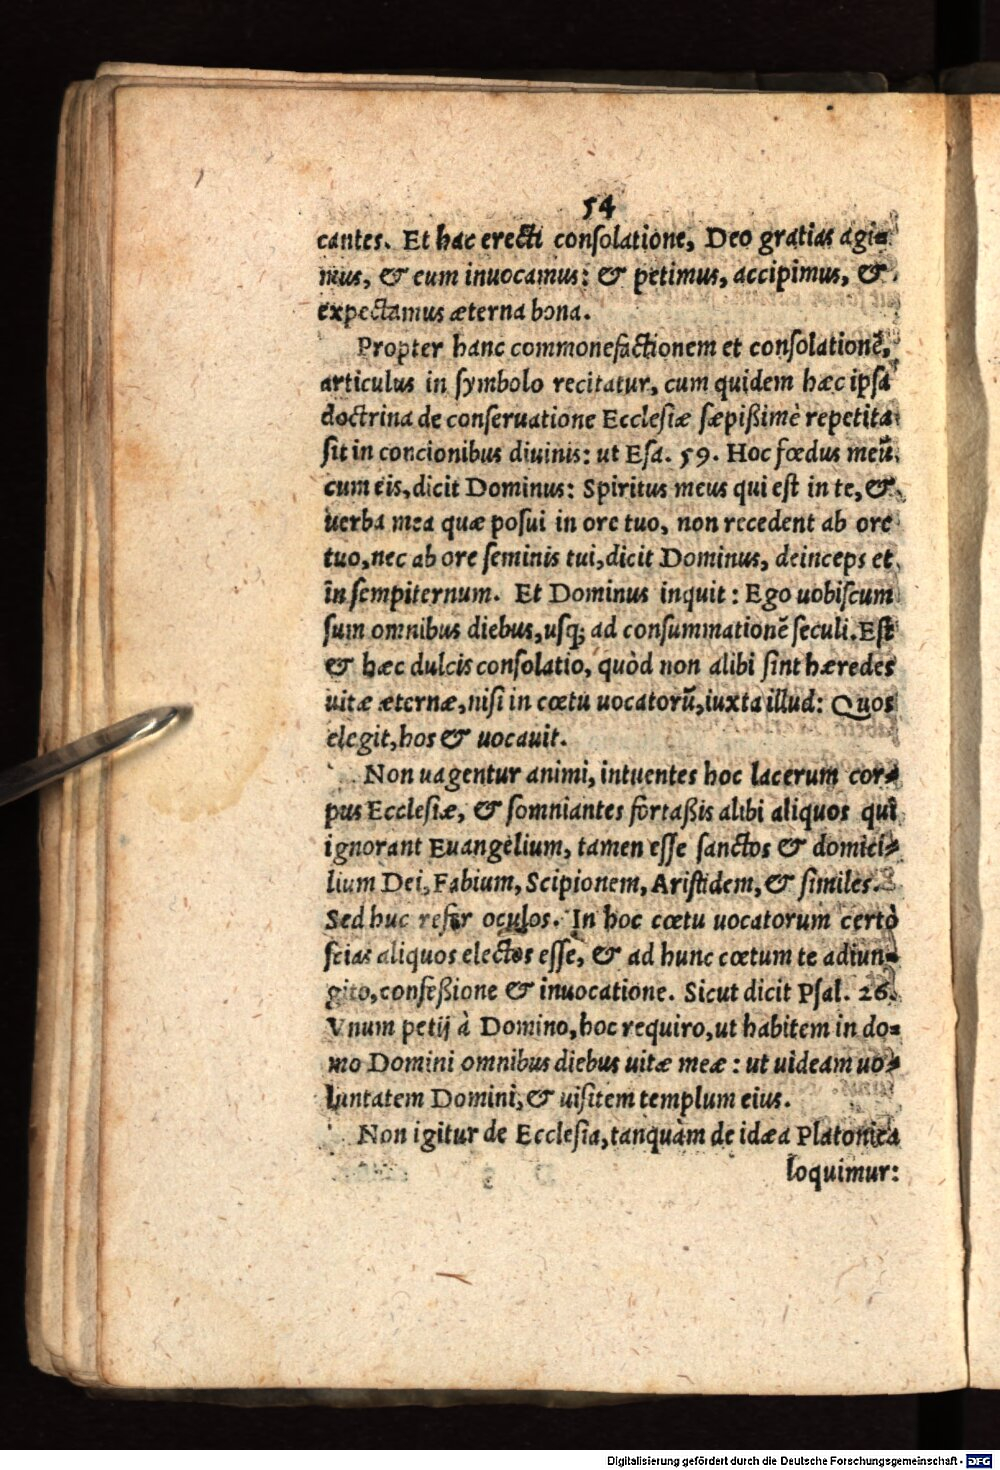 54
cantes. Et hac erecti conſolatione, Deo gratias agi⸗
mus, & eum inuocamus: & petimus, accipimus, &
expectamus æterna bona.
Propter hanc commonefactionem et conſolationē,
articulus in ſymbolo recitatur, cum quidem hæc ipſa
doctrina de conſeruatione Eccleſiæ ſæpißimè repetita
ſit in concionibus diuinis: ut Eſa. 59. Hoc fœdus meū
cum eis, dicit Dominus: Spiritus meus qui eſt in te, &
uerba mea quæ poſui in ore tuo, non recedent ab ore
tuo, nec ab ore ſeminis tui, dicit Dominus, deinceps et
in ſempiternum. Et Dominus inquit: Ego uobiſcum
ſum omnibus diebus, uſq; ad conſummationē ſeculi. Eſt
& hæc dulcis conſolatio, quòd non alibi ſint hæredes
uitæ æternæ, niſi in cœtu uocatorū, iuxta illud: Quos
elegit, hos & uocauit.
Non uagentur animi, intuentes hoc lacerum cor⸗
pus Eccleſiæ, & ſomniantes fortaßis alibi aliquos qui
ignorant Euangelium, tamen eſſe ſanctos & domici⸗
lium Dei, Fabium, Scipionem, Ariſtidem, & ſimiles.
Sed huc refer oculos. In hoc cœtu uocatorum certò
ſcias aliquos electos eſſe, & ad hunc cœtum te adiun⸗
gito, confeßione & inuocatione. Sicut dicit Pſal. 26.
Vnum petij à Domino, hoc requiro, ut habitem in do⸗
mo Domini omnibus diebus uitæ meæ: ut uideam uo⸗
luntatem Domini, & uiſitem templum eius.
Non igitur de Eccleſia, tanquàm de idæa Platonica
loquimur:
Digitalisierung gefördert durch die Deutsche Forschungsgemeinschaft - DFG